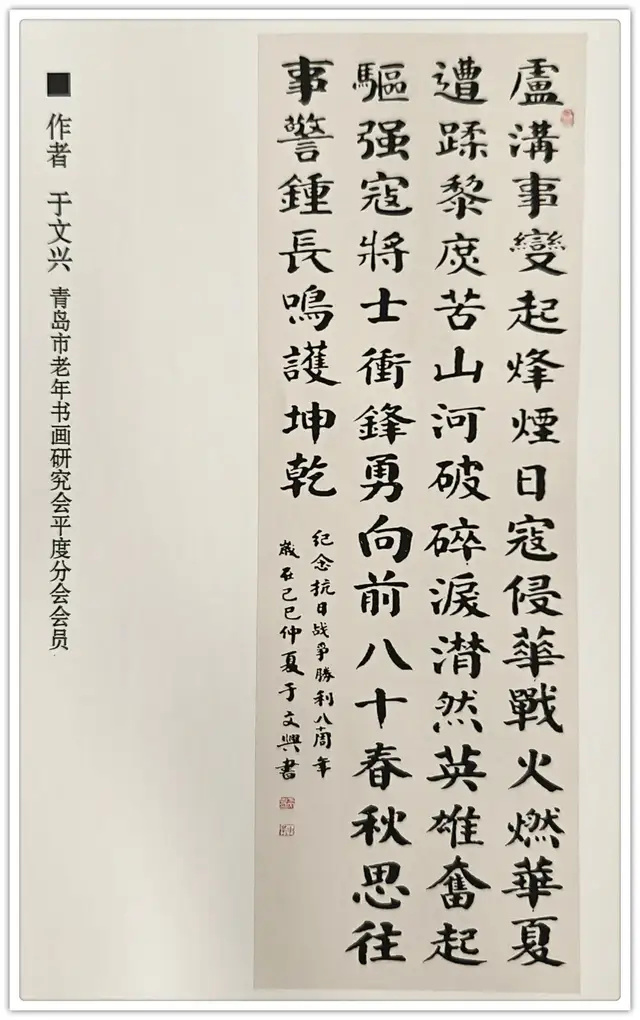 盧溝事變起烽煙日寇侵華戰火燃華夏
遭蹂黎庶苦山河破碎淚潸然英雄奮起
驅强寇將士衝鋒勇向前八十春秋思往
事警鍾長鳴護坤乾
纪念抗日战爭勝利八周年
歲在己巳仲夏于文興書
■ 作者 于文兴 青岛市老年书画研究会平度分会会员